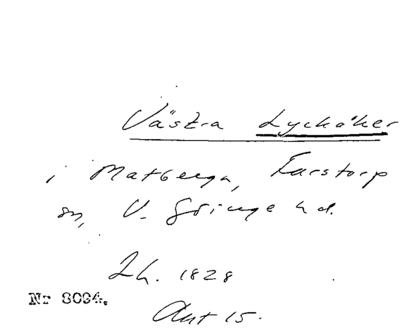 Västra Lyckåker
i Matberga, Farstorp
sn, V. Göinge hd.
Lh. 1828
Nr 8064.
Akt 15.